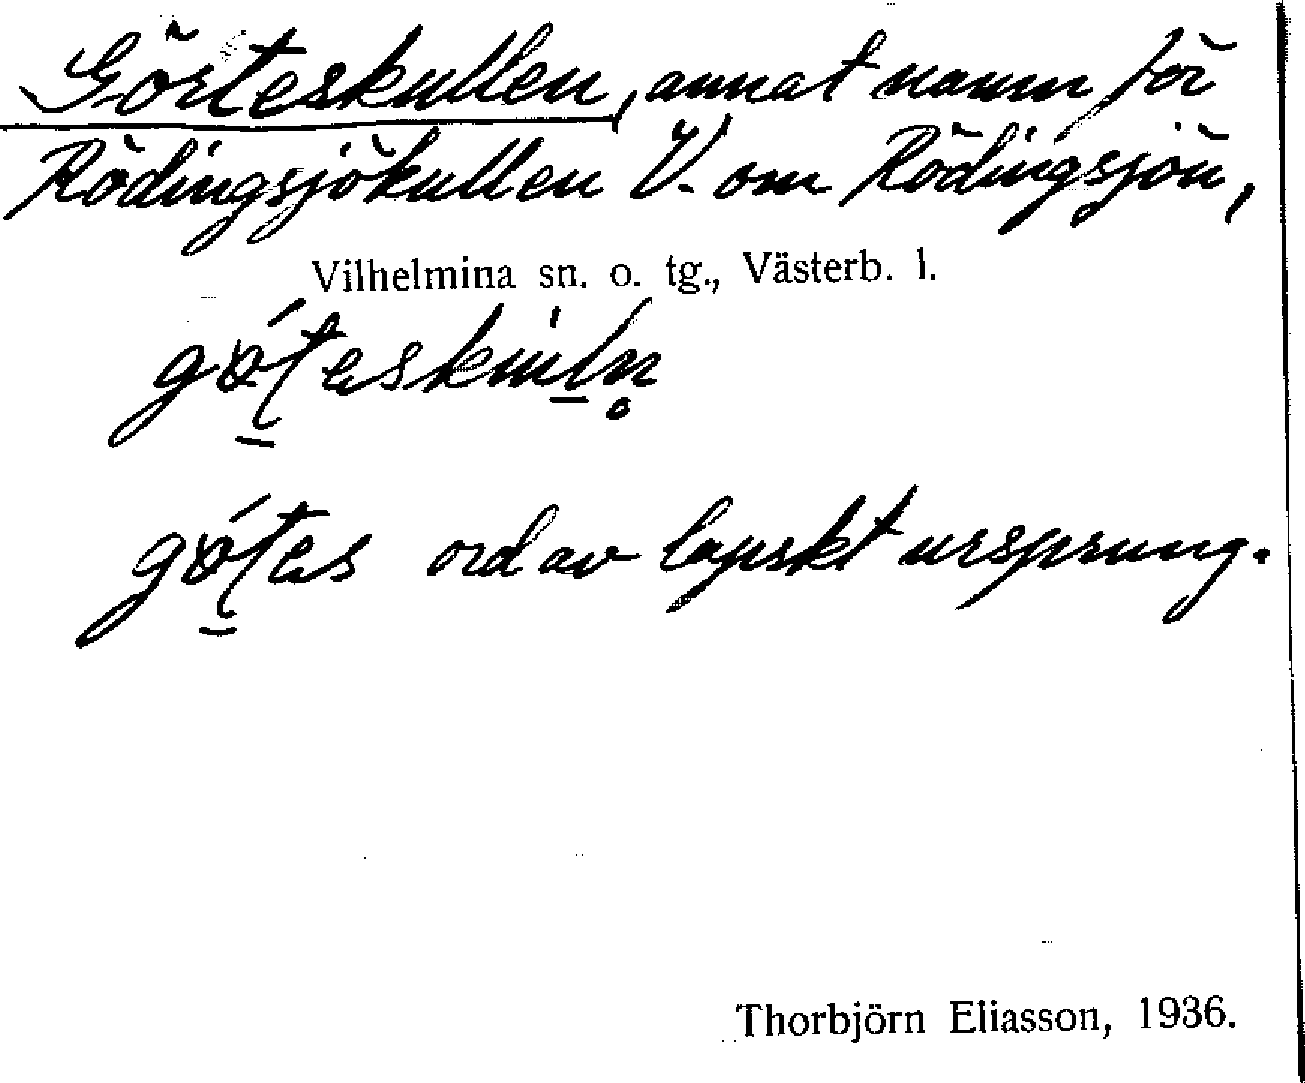 Görteskullen, annat namn för
Rödingsjökullen V. om Rödingsjön,
Vilhelmina sn. o. tg., Västerb. l.
ord av lapskt ursprung.
Thorbjörn Eliasson, 1936.